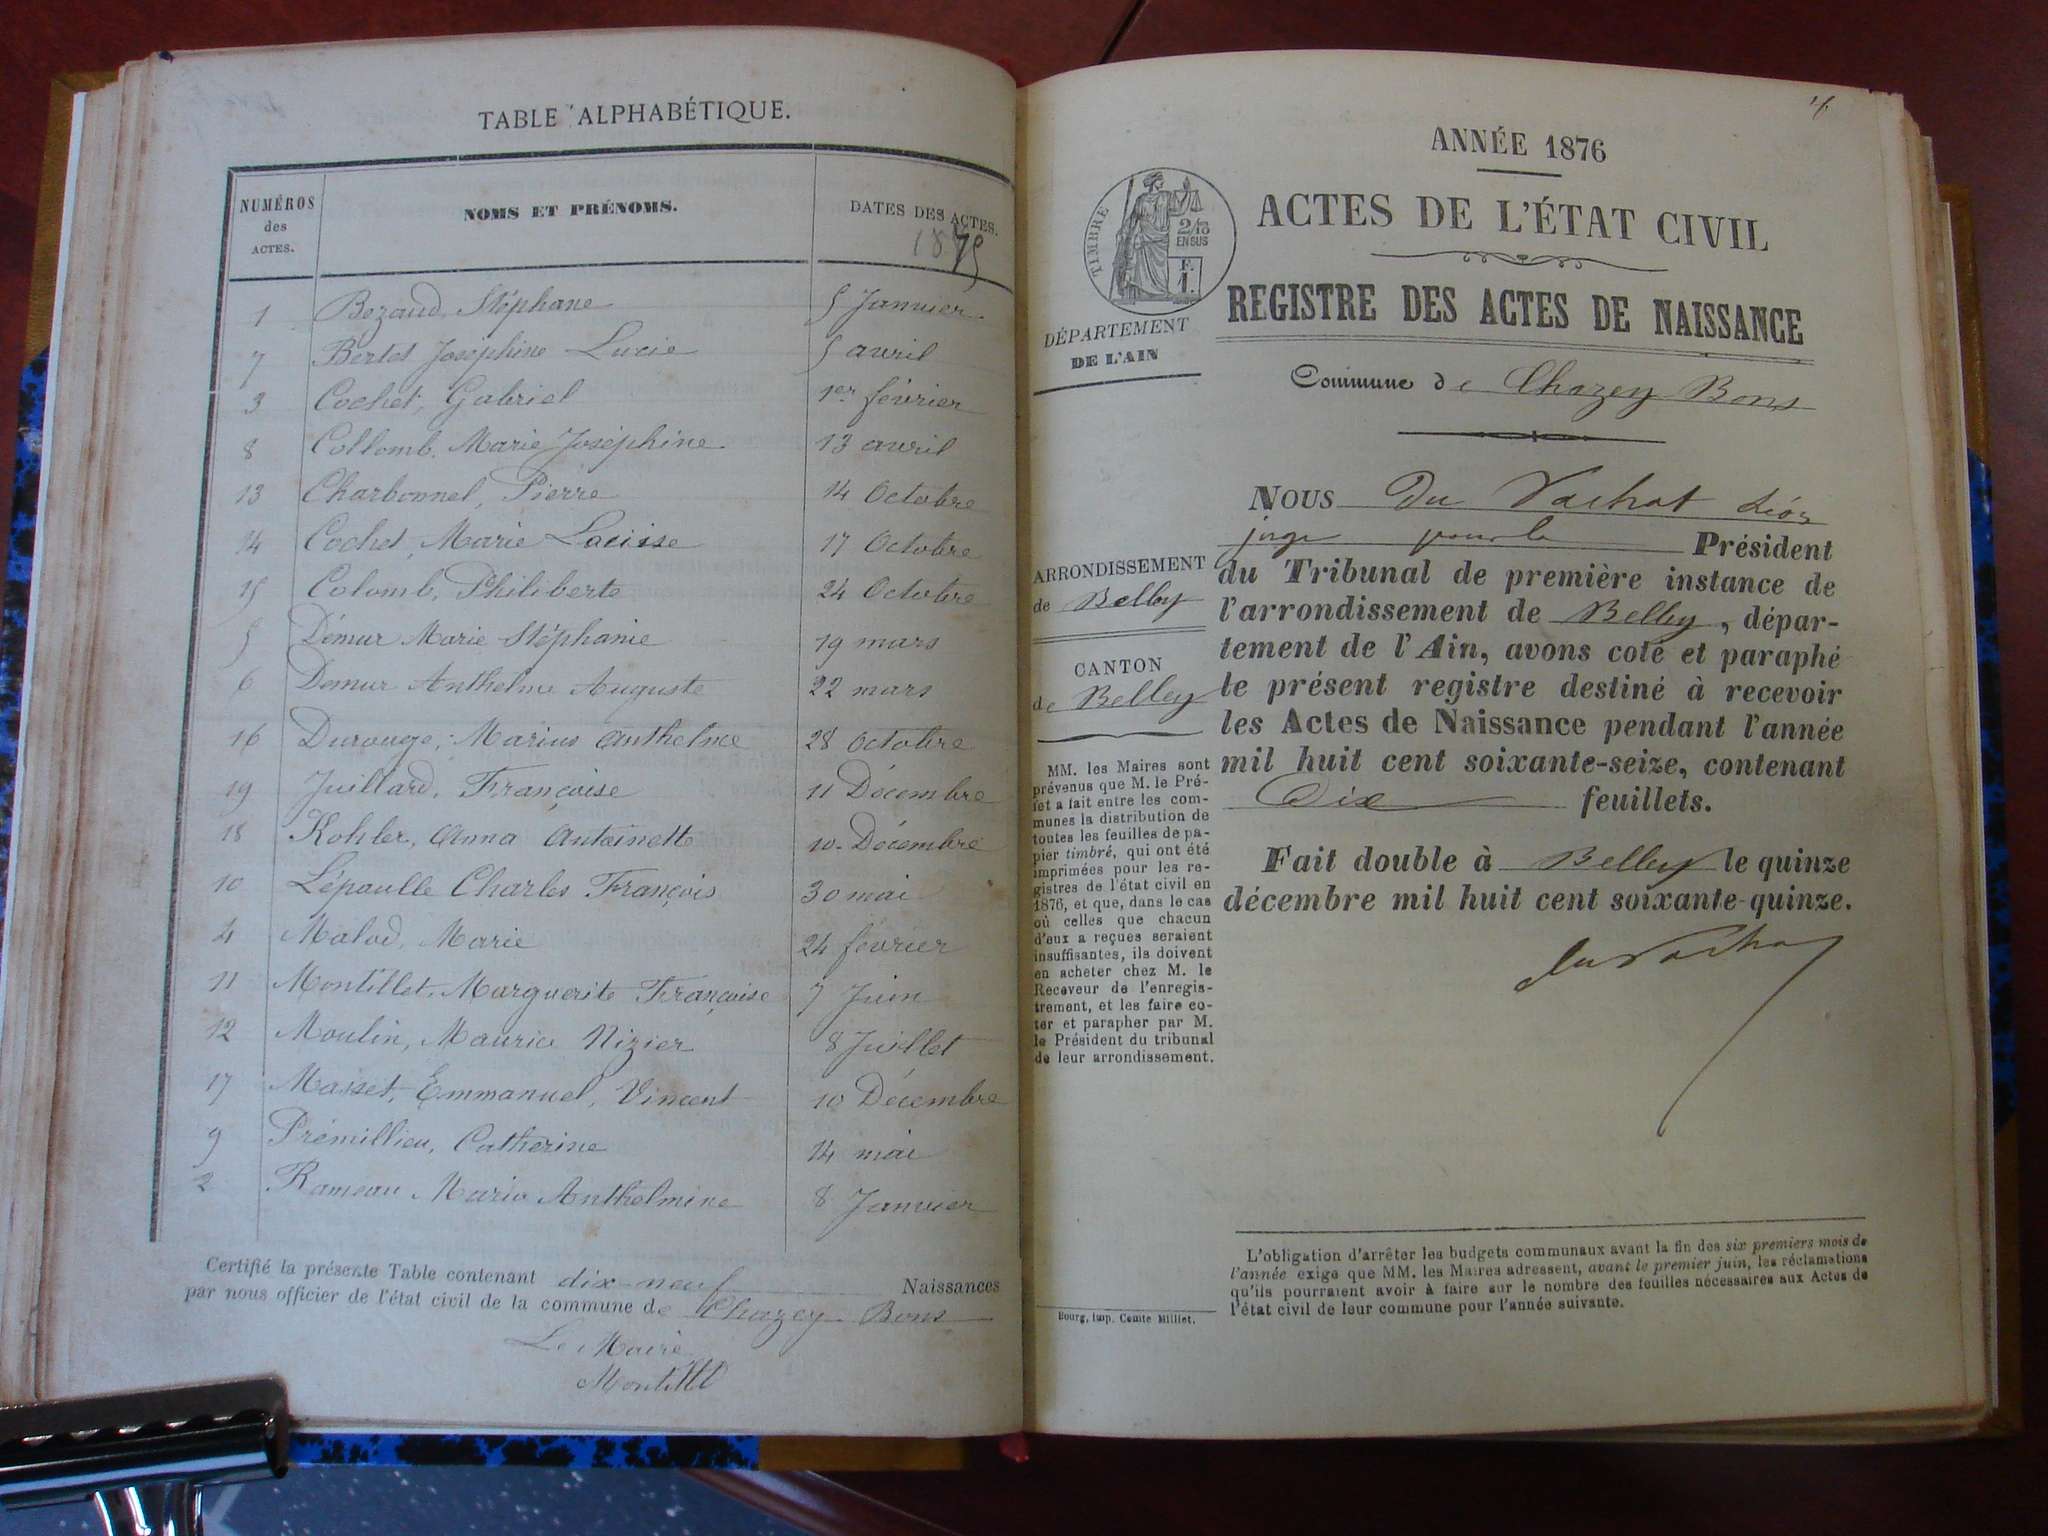 TABLE ALPHABÉTIQUE.
NUMÉROS des ACTES. NOMS ET PRÉNOMS. DATES DES ACTES.
1875
1 Bezaud Stéphane 5 Janvier.
7 Bertet Joséphine Lucie 5 avril
3 Cochet, Gabriel 1er février
8 Collomb, Marie Joséphine 13 avril
13 Charbonnel, Pierre 14 Octobre
14 Cochet, Marie Louise 17 Octobre
15 Colomb, Philiberte 24 Octobre
5 Démur Marie Stéphanie 19 mars
6 Demur Anthelme Auguste 22 mars
16 Durouge, Marius Anthelme 28 Octobre
19 Juillard, Françoise 11 Décembre
18 Kohler, Anna Antoinette 10 Décembre
10 Lépaulle Charles François 30 mai
4 Malod, Marie 24 février
11 Montillet, Marguerite Françoise 7 Juin
12 Moulin, Maurice Nizier 8 Juillet
17 Masset, Emmanuel, Vincent 10 Décembre
9 Prémillieu, Catherine 14 mai
2 Rameau Marie Anthelmine 8 Janvier
Certifié la présente Table contenant dix-neuf Naissances
par nous officier de l'état civil de la commune de Chazey Bons
Le Maire
Montillet
ANNÉE 1876
ACTES DE L'ÉTAT CIVIL
REGISTRE DES ACTES DE NAISSANCE
TIMBRE
2/10
EN SUS
F.
1.
DÉPARTEMENT
DE L'AIN
Commune de Chazey Bons
NOUS Du Vachat Léon
juge pour le Président
du Tribunal de première instance de
l'arrondissement de Belley, dépar-
tement de l'Ain, avons coté et paraphé
le présent registre destiné à recevoir
les Actes de Naissance pendant l'année
mil huit cent soixante-seize, contenant
Dix feuillets.
Fait double à Belley le quinze
décembre mil huit cent soixante-quinze.
du Vachat
ARRONDISSEMENT
de Belley
CANTON
de Belley
MM. les Maires sont
prévenus que M. le Pré-
fet a fait entre les com-
munes la distribution de
toutes les feuilles de pa-
pier timbré, qui ont été
imprimées pour les re-
gistres de l'état civil en
1876, et que, dans le cas
où celles que chacun
d'eux a reçues seraient
insuffisantes, ils doivent
en acheter chez M. le
Receveur de l'enregis-
trement, et les faire co-
ter et parapher par M.
le Président du tribunal
de leur arrondissement.
Bourg, imp. Comte Milliet.
L'obligation d'arrêter les budgets communaux avant la fin des six premiers mois de
l'année exige que MM. les Maires adressent, avant le premier juin, les réclamations
qu'ils pourraient avoir à faire sur le nombre des feuilles nécessaires aux Actes de
l'état civil de leur commune pour l'année suivante.